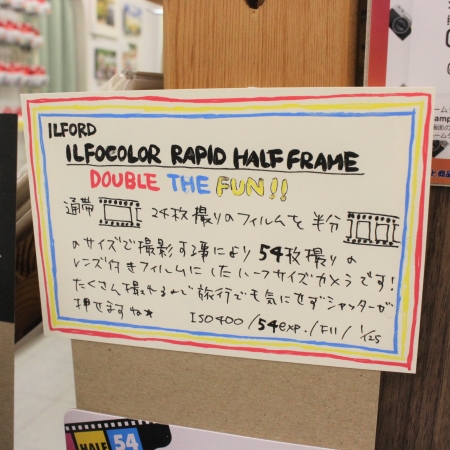 ILFORD
ILFOCOLOR RAPID HALF FRAME
DOUBLE THE FUN!!
通常 24枚撮りのフィルムを 半分
のサイズで撮影する事により 54枚撮りの
レンズ付きフィルムにしたハーフサイズカメラです!
たくさん撮れるので旅行でも気にせずシャッターが
押せますね★
ISO400/54exp./F11/ 1/125
HALF 54